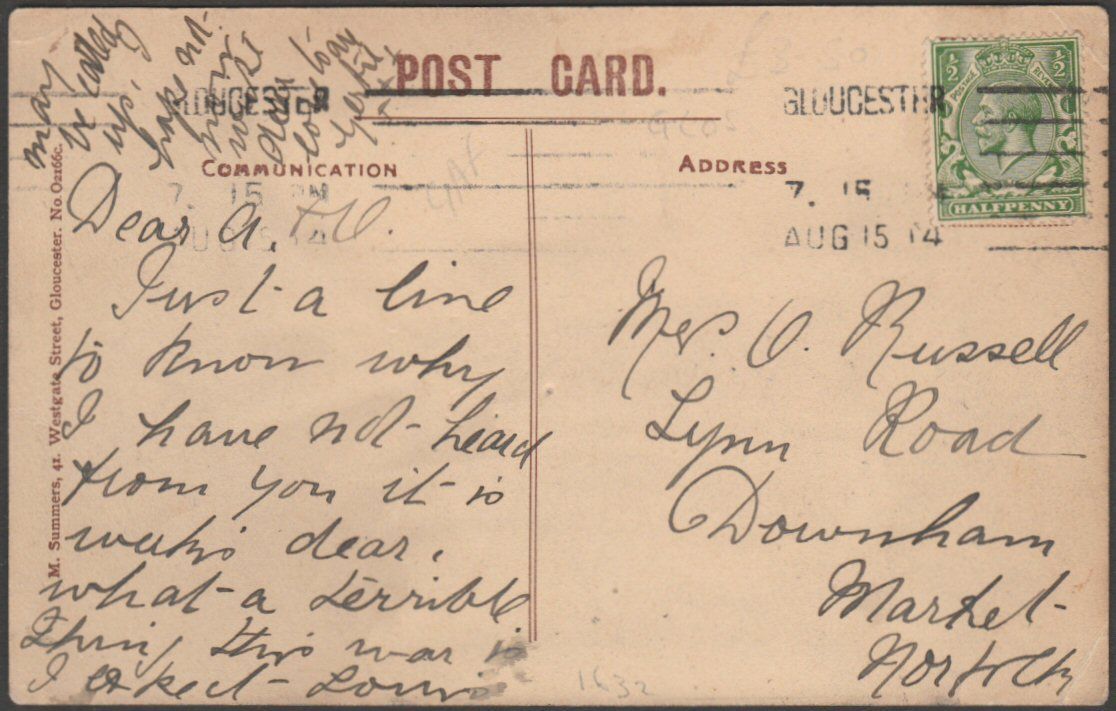 POST CARD.
COMMUNICATION
ADDRESS
M. Summers, 41. Westgate Street, Gloucester. No. O2166c.
GLOUCESTER
7. 15 PM
AUG 15 14
GLOUCESTER
7. 15
AUG 15 14
½ ½
POSTAGE REVENUE
HALFPENNY
£3.50
GLOS
1632
Dear A.
Just a line
to know why
I have not heard
from you it is
weeks dear.
what a terrible
thing this war is
I expect Louis
may
be called
up.
has not
been
day
Mrs. O. Russell
Lynn Road
Downham
Market
Norfolk